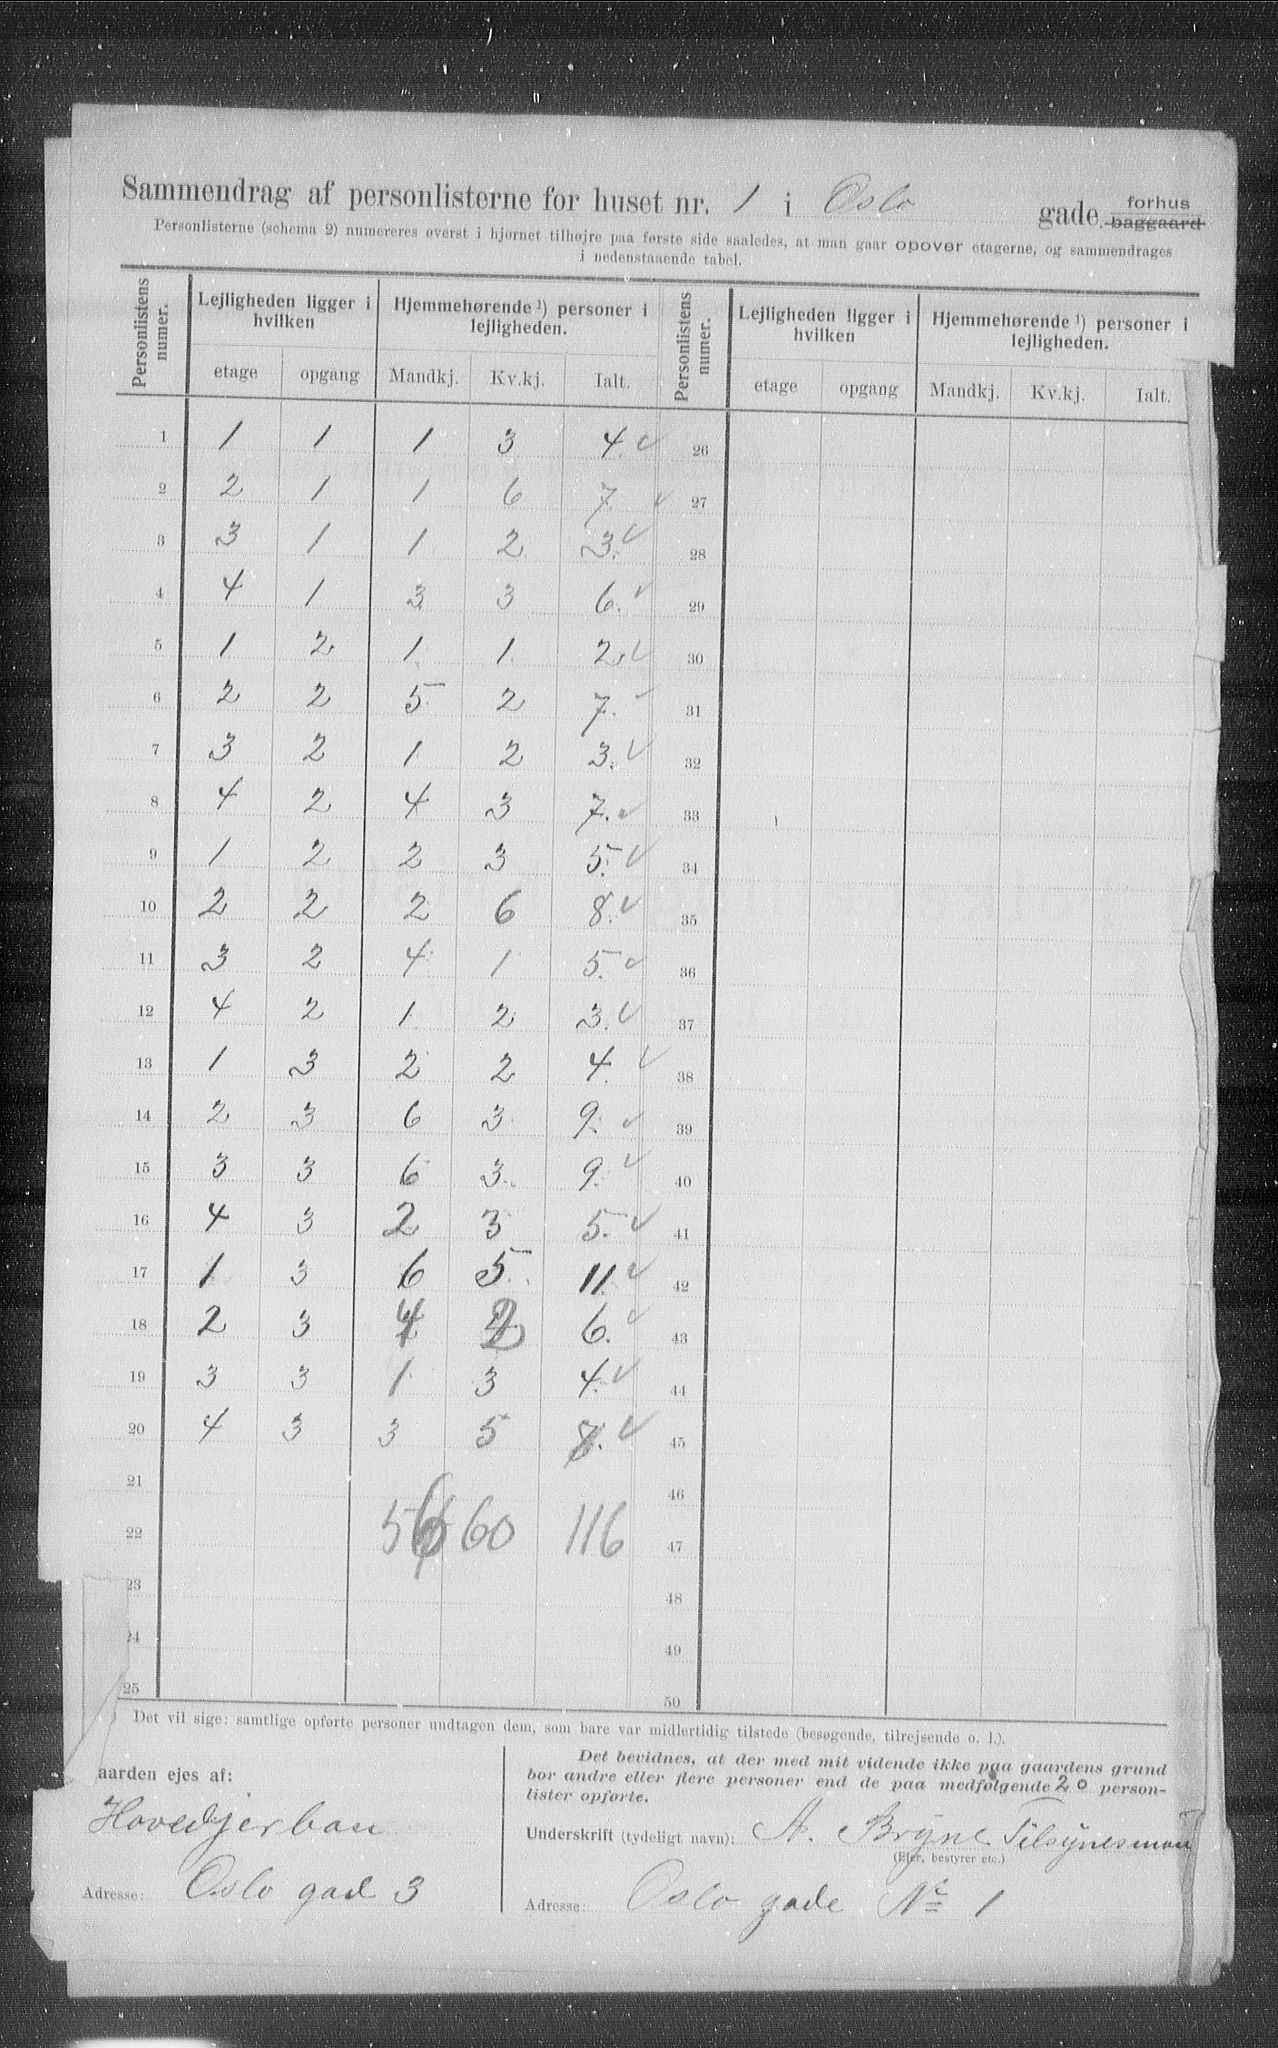 Sammendrag af personlisterne for huset nr. 1 i Oslo gade. forhus baggaard
Personlisterne (schema 2) numereres øverst i hjørnet tilhøjre paa første side saaledes, at man gaar opover etagerne, og sammendrages
i nedenstaaende tabel.
Personlistens numer. Lejligheden ligger i hvilken Hjemmehørende ¹) personer i lejligheden. Personlistens numer. Lejligheden ligger i hvilken Hjemmehørende ¹) personer i lejligheden.
etage opgang Mandkj. Kv.kj. Ialt. etage opgang Mandkj. Kv.kj. Ialt.
1 1 1 1 3 4. ✓ 26
2 2 1 1 6 7. ✓ 27
3 3 1 1 2 3. ✓ 28
4 4 1 3 3 6. ✓ 29
5 1 2 1 1 2 ✓ 30
6 2 2 5 2 7. ✓ 31
7 3 2 1 2 3. ✓ 32
8 4 2 4 3 7. ✓ 33
9 1 2 2 3 5. ✓ 34
10 2 2 2 6 8. ✓ 35
11 3 2 4 1 5. ✓ 36
12 4 2 1 2 3. ✓ 37
13 1 3 2 2 4. ✓ 38
14 2 3 6 3 9. ✓ 39
15 3 3 6 3 9. ✓ 40
16 4 3 2 3 5. ✓ 41
17 1 3 6 5 11. ✓ 42
18 2 3 4 2 6. ✓ 43
19 3 3 1 3 4. ✓ 44
20 4 3 3 5 8. ✓ 45
21 46
22 56 60 116 47
23 48
24 49
25 50
Det vil sige: samtlige opførte personer undtagen dem, som bare var midlertidig tilstede (besøgende, tilrejsende o. l.).
aarden ejes af:
Hovedjerban
Adresse: Oslo gad 3
Det bevidnes, at der med mit vidende ikke paa gaardens grund
bor andre eller flere personer end de paa medfølgende 20 person-
lister opførte.
Underskrift (tydeligt navn): A. Bryne Tilsynesman
(Ejer, bestyrer etc.)
Adresse: Oslo gade No 1